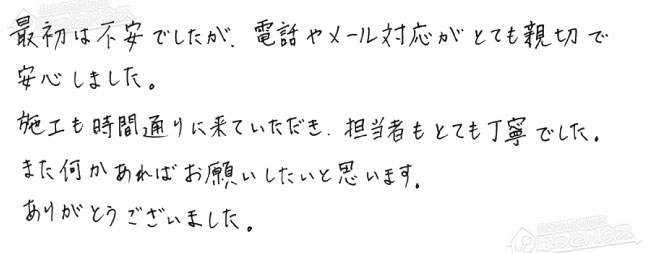 最初は不安でしたが、電話やメール対応がとても親切で
安心しました。
施工も時間通りに来ていただき、担当者もとても丁寧でした。
また何かあればお願いしたいと思います。
ありがとうございました。